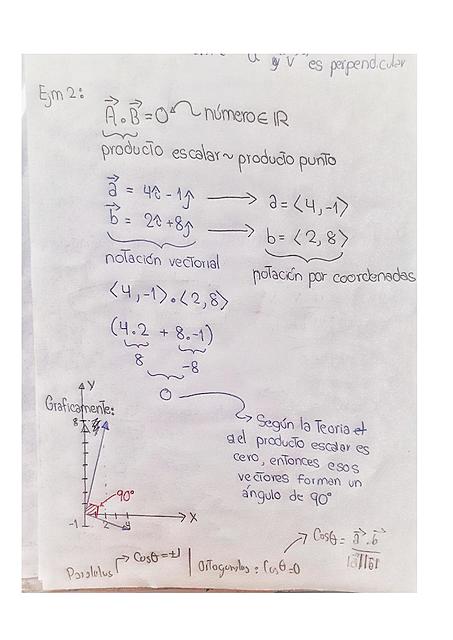 u y v es perpendicular
Ejm 2:
A⃗ . B⃗ = 0 número ∈ ℝ
producto escalar ~ producto punto
a⃗ = 4î - 1ĵ → a = ⟨4, -1⟩
b⃗ = 2î + 8ĵ → b = ⟨2, 8⟩
notación vectorial
notación por coordenadas
⟨4, -1⟩ . ⟨2, 8⟩
(4.2 + 8.-1)
8 -8
0
Graficamente:
Según la Teoria et
del producto escalar es
cero, entonces esos
vectores forman un
ángulo de 90°
Y
8
90°
-1 2 4 X
Cosθ = a⃗ . b⃗
|a⃗||b⃗|
Paralelus → Cosθ = ±1 | Ortogonales : Cosθ = 0